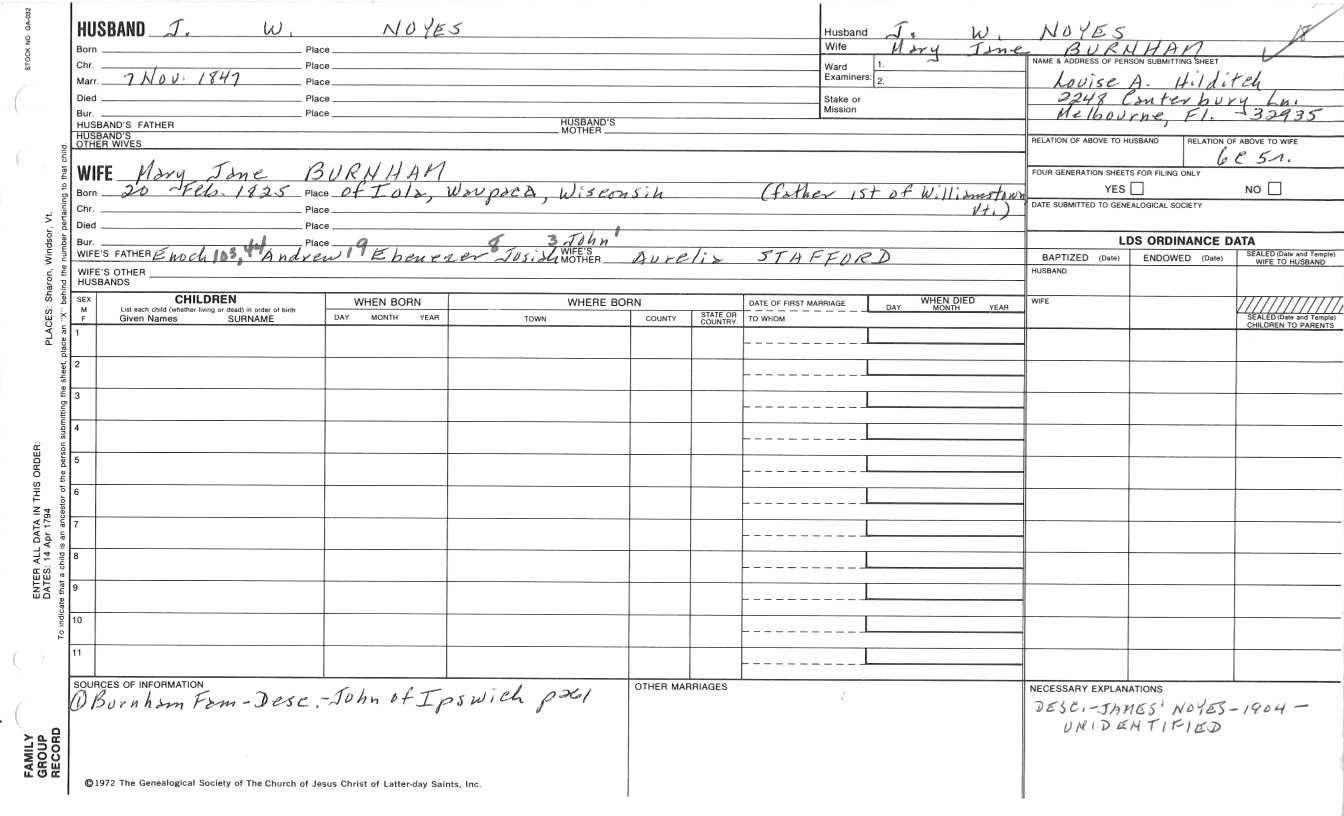 STOCK NO. GA-032
PLACES: Sharon, Windsor, Vt.
ENTER ALL DATA IN THIS ORDER:
DATES: 14 Apr 1794
To indicate that a child is an ancestor of the person submitting the sheet, place an "X" behind the number pertaining to that child.
FAMILY
GROUP
RECORD
HUSBAND J. W. NOYES
Born Place
Chr. Place
Marr. 7 Nov. 1847 Place
Died Place
Bur. Place
HUSBAND'S FATHER HUSBAND'S MOTHER
HUSBAND'S OTHER WIVES
WIFE Mary Jane BURNHAM
Born 20 Feb. 1825 Place of Iola, Waupaca, Wisconsin (father 1st of Williamstown Vt.)
Chr. Place
Died Place
Bur. Place
WIFE'S FATHER Enoch 103, 44 Andrew 19 Ebenezer 8 Josiah 3 John 1 WIFE'S MOTHER Aurelia STAFFORD
WIFE'S OTHER HUSBANDS
Husband J. W. NOYES
Wife Mary Jane BURNHAM
Ward 1.
Examiners: 2.
Stake or
Mission
NAME & ADDRESS OF PERSON SUBMITTING SHEET
Louise A. Hilditch
2248 Canterbury Ln.
Melbourne, Fl. 32935
RELATION OF ABOVE TO HUSBAND RELATION OF ABOVE TO WIFE
6C 5r.
FOUR GENERATION SHEETS FOR FILING ONLY
YES NO
DATE SUBMITTED TO GENEALOGICAL SOCIETY
LDS ORDINANCE DATA
BAPTIZED (Date) ENDOWED (Date) SEALED (Date and Temple) WIFE TO HUSBAND
HUSBAND
WIFE
SEALED (Date and Temple) CHILDREN TO PARENTS
SEX M F
CHILDREN
List each child (whether living or dead) in order of birth
Given Names SURNAME
WHEN BORN
DAY MONTH YEAR
WHERE BORN
TOWN COUNTY STATE OR COUNTRY
DATE OF FIRST MARRIAGE
TO WHOM
WHEN DIED
DAY MONTH YEAR
1
2
3
4
5
6
7
8
9
10
11
SOURCES OF INFORMATION
① Burnham Fam-Desc.-John of Ipswich p261
OTHER MARRIAGES
NECESSARY EXPLANATIONS
DESC.-JAMES' NOYES-1904-
UNIDENTIFIED
©1972 The Genealogical Society of The Church of Jesus Christ of Latter-day Saints, Inc.